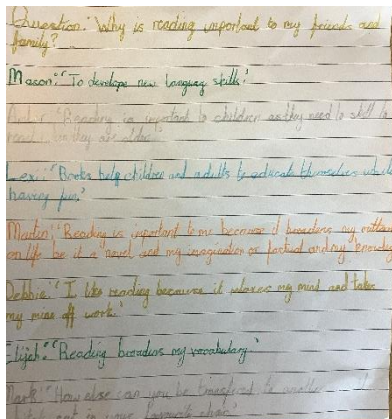 Question: 'Why is reading important to my friends and
family?
Mason: 'To develope new language skills.'
'Reading is important to children as they need to skill to
read when they are older.'
Lexi: 'Books help children and adults to educate themselves while
having fun.'
Martin: 'Reading is important to me because it broadens my outlook
on life be it a novel and my imagination or factual and my knowledge
Debbie: 'I like reading because it relaxes my mind and takes
my mind off work.'
Elijah: 'Reading broadens my vocabulary.'
Mark: 'How else can you be transferred to another
in your favourite chair.'